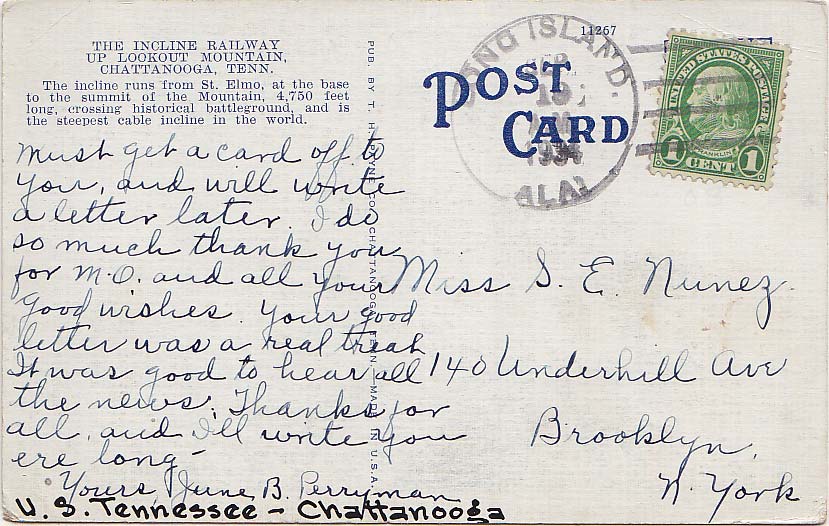 THE INCLINE RAILWAY
UP LOOKOUT MOUNTAIN,
CHATTANOOGA, TENN.
The incline runs from St. Elmo, at the base
to the summit of the Mountain, 4,750 feet
long, crossing historical battleground, and is
the steepest cable incline in the world.
Must get a card off to
you, and will write
a letter later. I do
so much thank you
for M.O. and all your
good wishes. Your good
letter was a real treat
It was good to hear all
the news. Thanks for
all, and I'll write you
ere long –
Yours, June B. Perryman
U.S. Tennessee – Chattanooga
PUB. BY T. H. PAYNE CO., CHATTANOOGA, TENN.—MADE IN U.S.A.
11267
POST
CARD
LONG ISLAND.
19
1934
ALA.
UNITED STATES POSTAGE
FRANKLIN
1 CENT 1
Miss S. E. Nunez.
140 Underhill Ave
Brooklyn,
N. York